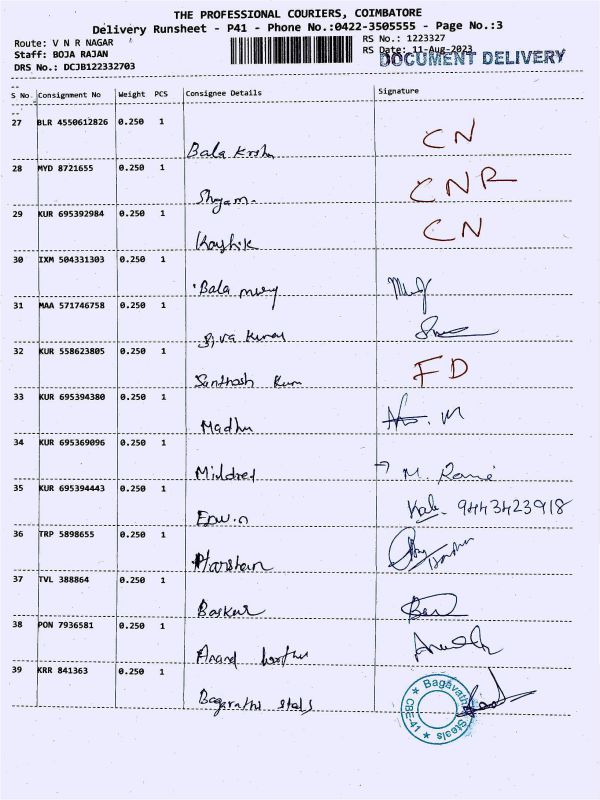 THE PROFESSIONAL COURIERS, COIMBATORE
Delivery Runsheet - P41 - Phone No.:0422-3505555 - Page No.:3
Route: V N R NAGAR
RS No.: 1223327
Staff: BOJA RAJAN
RS Date: 11-Aug-2023
DRS No.: DCJB122332703
DOCUMENT DELIVERY
S No. Consignment No Weight PCS Consignee Details Signature
27 BLR 4550612826 0.250 1
Bala CN
28 MYD 8721655 0.250 1
Shyam- CNR
29 KUR 695392984 0.250 1
Kaushik CN
30 IXM 504331303 0.250 1
Bala
31 MAA 571746758 0.250 1
Siva Kumar
32 KUR 558623805 0.250 1
Santhosh Kum FD
33 KUR 695394380 0.250 1
Madhu
34 KUR 695369096 0.250 1
Mildred M.
35 KUR 695394443 0.250 1
Edwin 9443423918
36 TRP 5898655 0.250 1
37 TVL 388864 0.250 1
Baskar
38 PON 7936581 0.250 1
Anand
39 KRR 841363 0.250 1
★ Bagavathi Steels ★ CBE-41